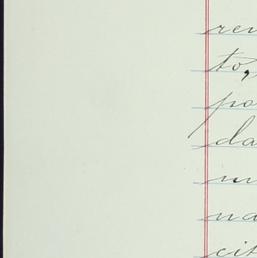 rev
to,
po
da
m
na
cit